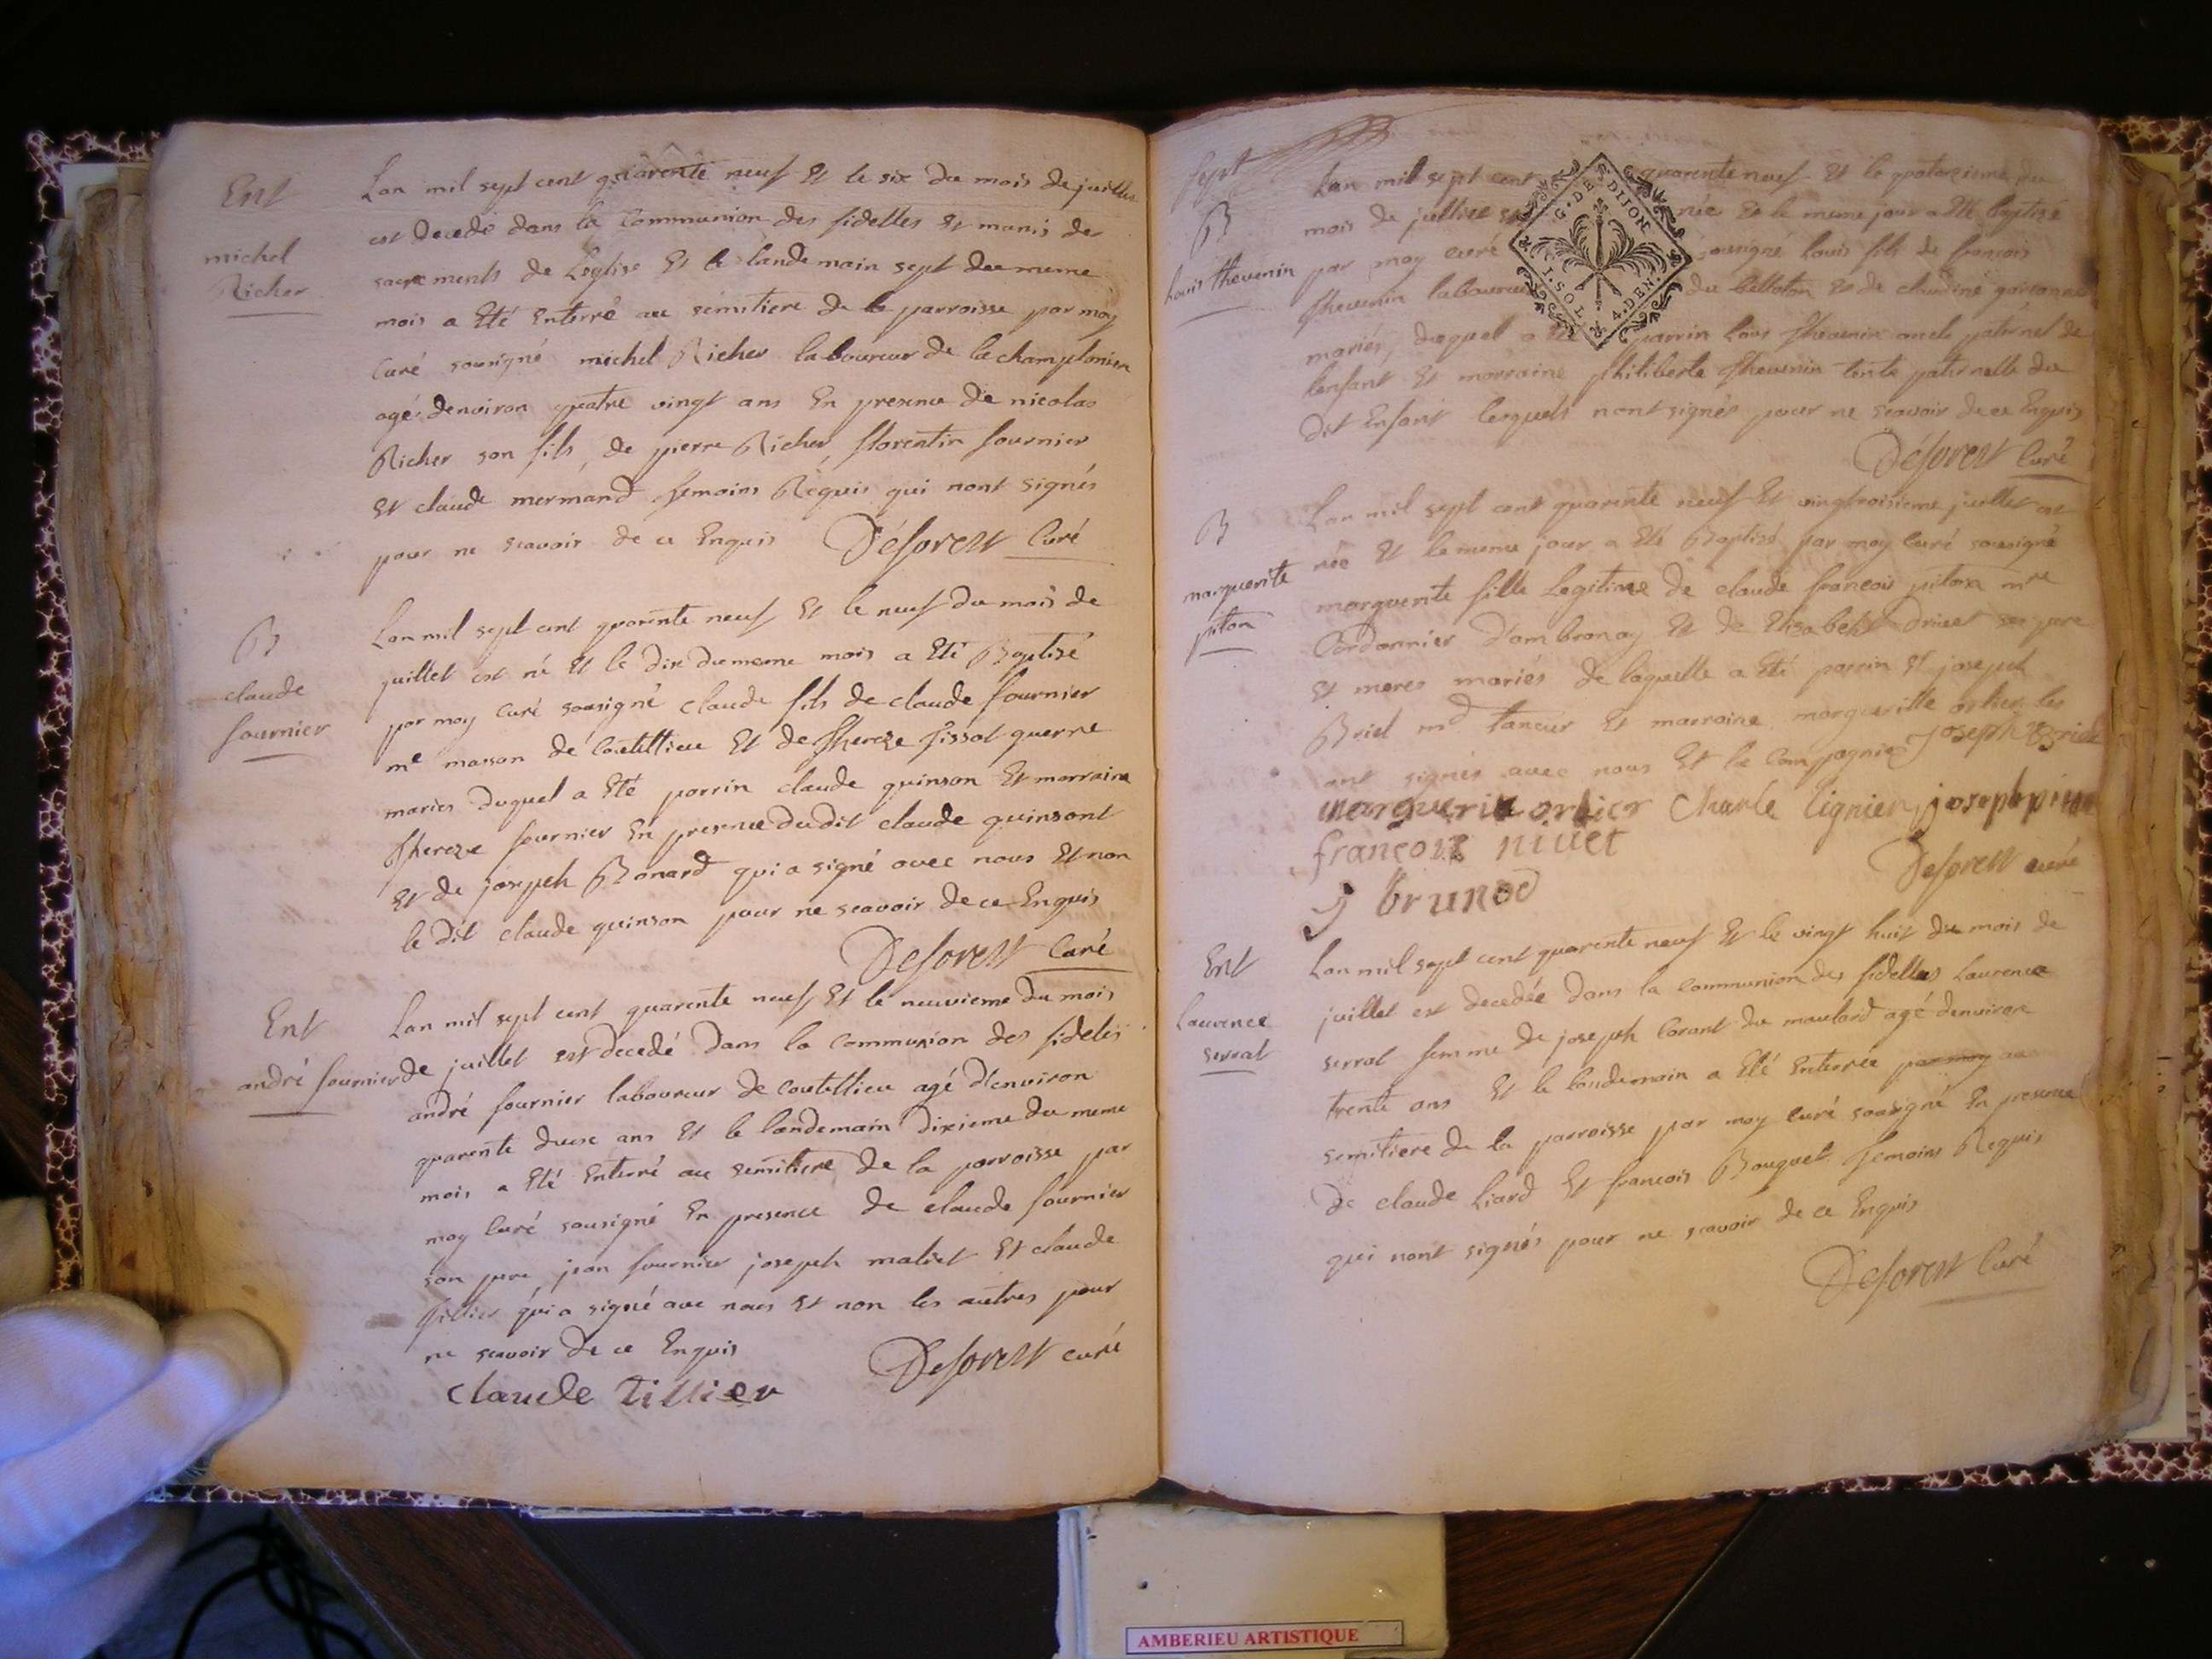 Ent
michel
Richer
Lan mil sept cent quarente neuf Et le six du mois de juillet
est decedé dans la Communion des fidelles et munis des
sacrements de Leglise Et le landemain sept du meme
mois a Eté Enterré au semitiere de la parroisse par moy
Curé sousigné michel Richer laboureur de
agé denviron quatre vingt ans En presence de nicolas
Richer son fils, de pierre Richer, florentin fournier
Et claude mermand temoins Réquis qui nont signés
pour ne scavoir de ce Enquis Déforest Curé
B
claude
fournier
Lan mil sept cent quarente neuf Et le neuf du mois de
juillet est né Et le dix du meme mois a Eté Baptisé
par moy Curé sousigné claude fils de claude fournier
me masson de Coutellieu Et de thereze
mariés duquel a Eté parrin claude quinson Et marraine
thereze fournier En presence dudit claude quinsont
Et de joseph Bonard qui a signé avec nous Et non
le dit claude quinson pour ne scavoir de ce Enquis
Deforest Curé
Ent
andré fournier
Lan mil sept cent quarente neuf Et le neuvieme du mois
de juillet est decedé dans la Communion des fideles
andré fournier laboureur de coutellieu agé d'environ
quarente deux ans Et le landemain dixieme du meme
mois a Eté Enterré au semitiere de la parroisse par
moy Curé sousigné En presence de claude fournier
son pere, jean fournier joseph maliet Et claude
tillier qui a signé avec nous Et non les autres pour
ne scavoir de ce Enquis Deforest curé
claude Tillier
sept
B
Louis thevenin
Lan mil sept cent quarente neuf Et le quatorzieme du
mois de juillet est née Et le meme jour a Eté baptisé
par moy curé sousigné Louis fils de francois
thevenin laboureur du belloton Et de claudine
mariés, duquel a Eté parrin Louis thevenin oncle paternel de
lenfant Et marraine philiberte thevenin tente paternelle du
dit Enfant lesquels nont signés pour ne scavoir de ce Enquis
Déforest Curé
G. DE DIJON
1. SOL. 4. DEN.
B
marguerite
piton
Lan mil sept cent quarente neuf Et vingtroisieme juillet est
née Et le meme jour a Eté Baptisé par moy Curé sousigné
marguerite fille Legitime de claude francois piton mre
Cordonnier d'ambronay Et de Elisabeht Drivet ses pere
Et meres mariés de laquelle a Eté parrin sr joseph
Briel md taneur Et marraine marguerite orlier les
ont signés avec nous Et la Compagnie Joseph Briel
marguerite orlier Charle lignier, joseph piton
françois nivet
J brunod Deforest curé
Ent
Laurence
serrat
Lan mil sept cent quarente neuf Et le vingt huit du mois de
juillet est decedée dans la communion des fidelles Laurence
serrat femme de joseph Corant du maulard agé denviron
trente ans Et le landemain a Eté Enterrée par moy au
semitiere de la parroisse par moy curé sousigné En presence
de claude Liard Et francois Bouquet temoins Requis
qui nont signés pour ne scavoir de ce Enquis
Deforest Curé
AMBERIEU ARTISTIQUE